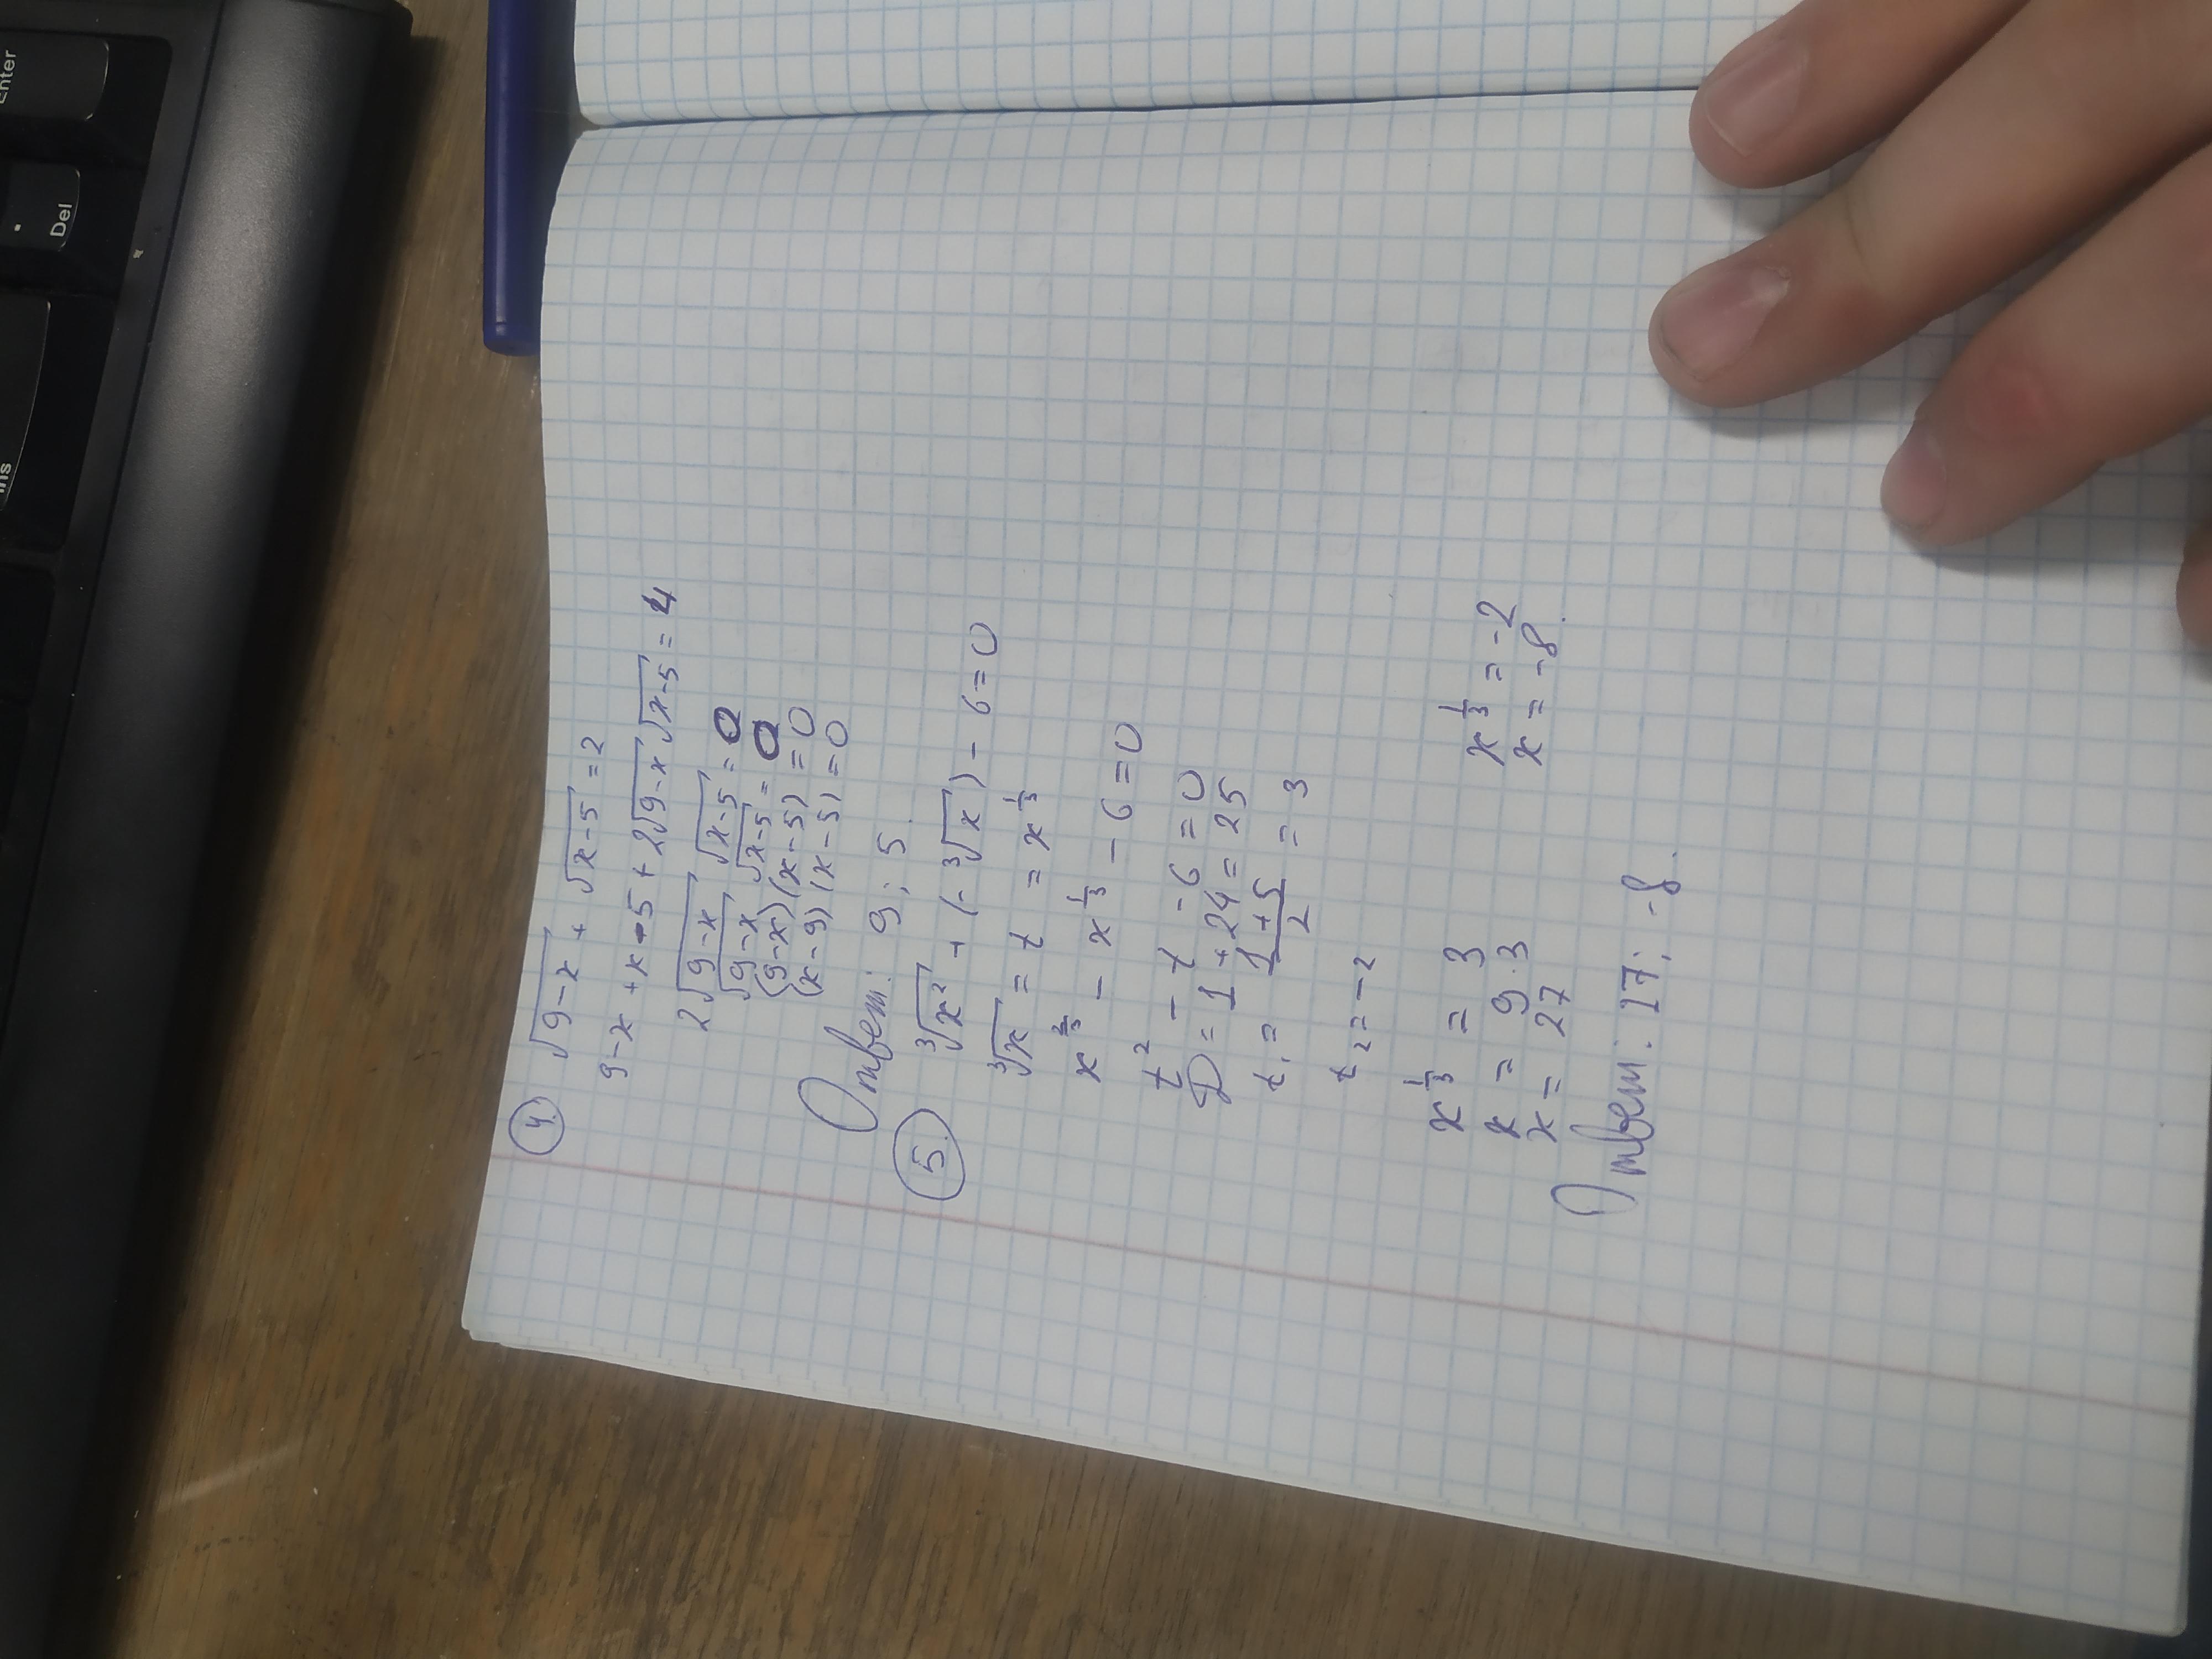 4. √9-x + √x-5 = 2
9-x + x-5 + 2√9-x √x-5 = 4
2√9-x √x-5 = 0
√9-x √x-5 = 0
(9-x)(x-5) = 0
(x-9)(x-5) = 0
Ответ: 9; 5.
5. ³√x² + (-³√x) - 6 = 0
³√x = t = x^1/3
x^2/3 - x^1/3 - 6 = 0
t² - t - 6 = 0
D = 1 + 24 = 25
t₁ = 1+5/2 = 3
t₂ = -2
x^1/3 = 3
x = 9·3
x = 27
x^1/3 = -2
x = -8.
Ответ: 17; -8.
Enter
. Del
Ins